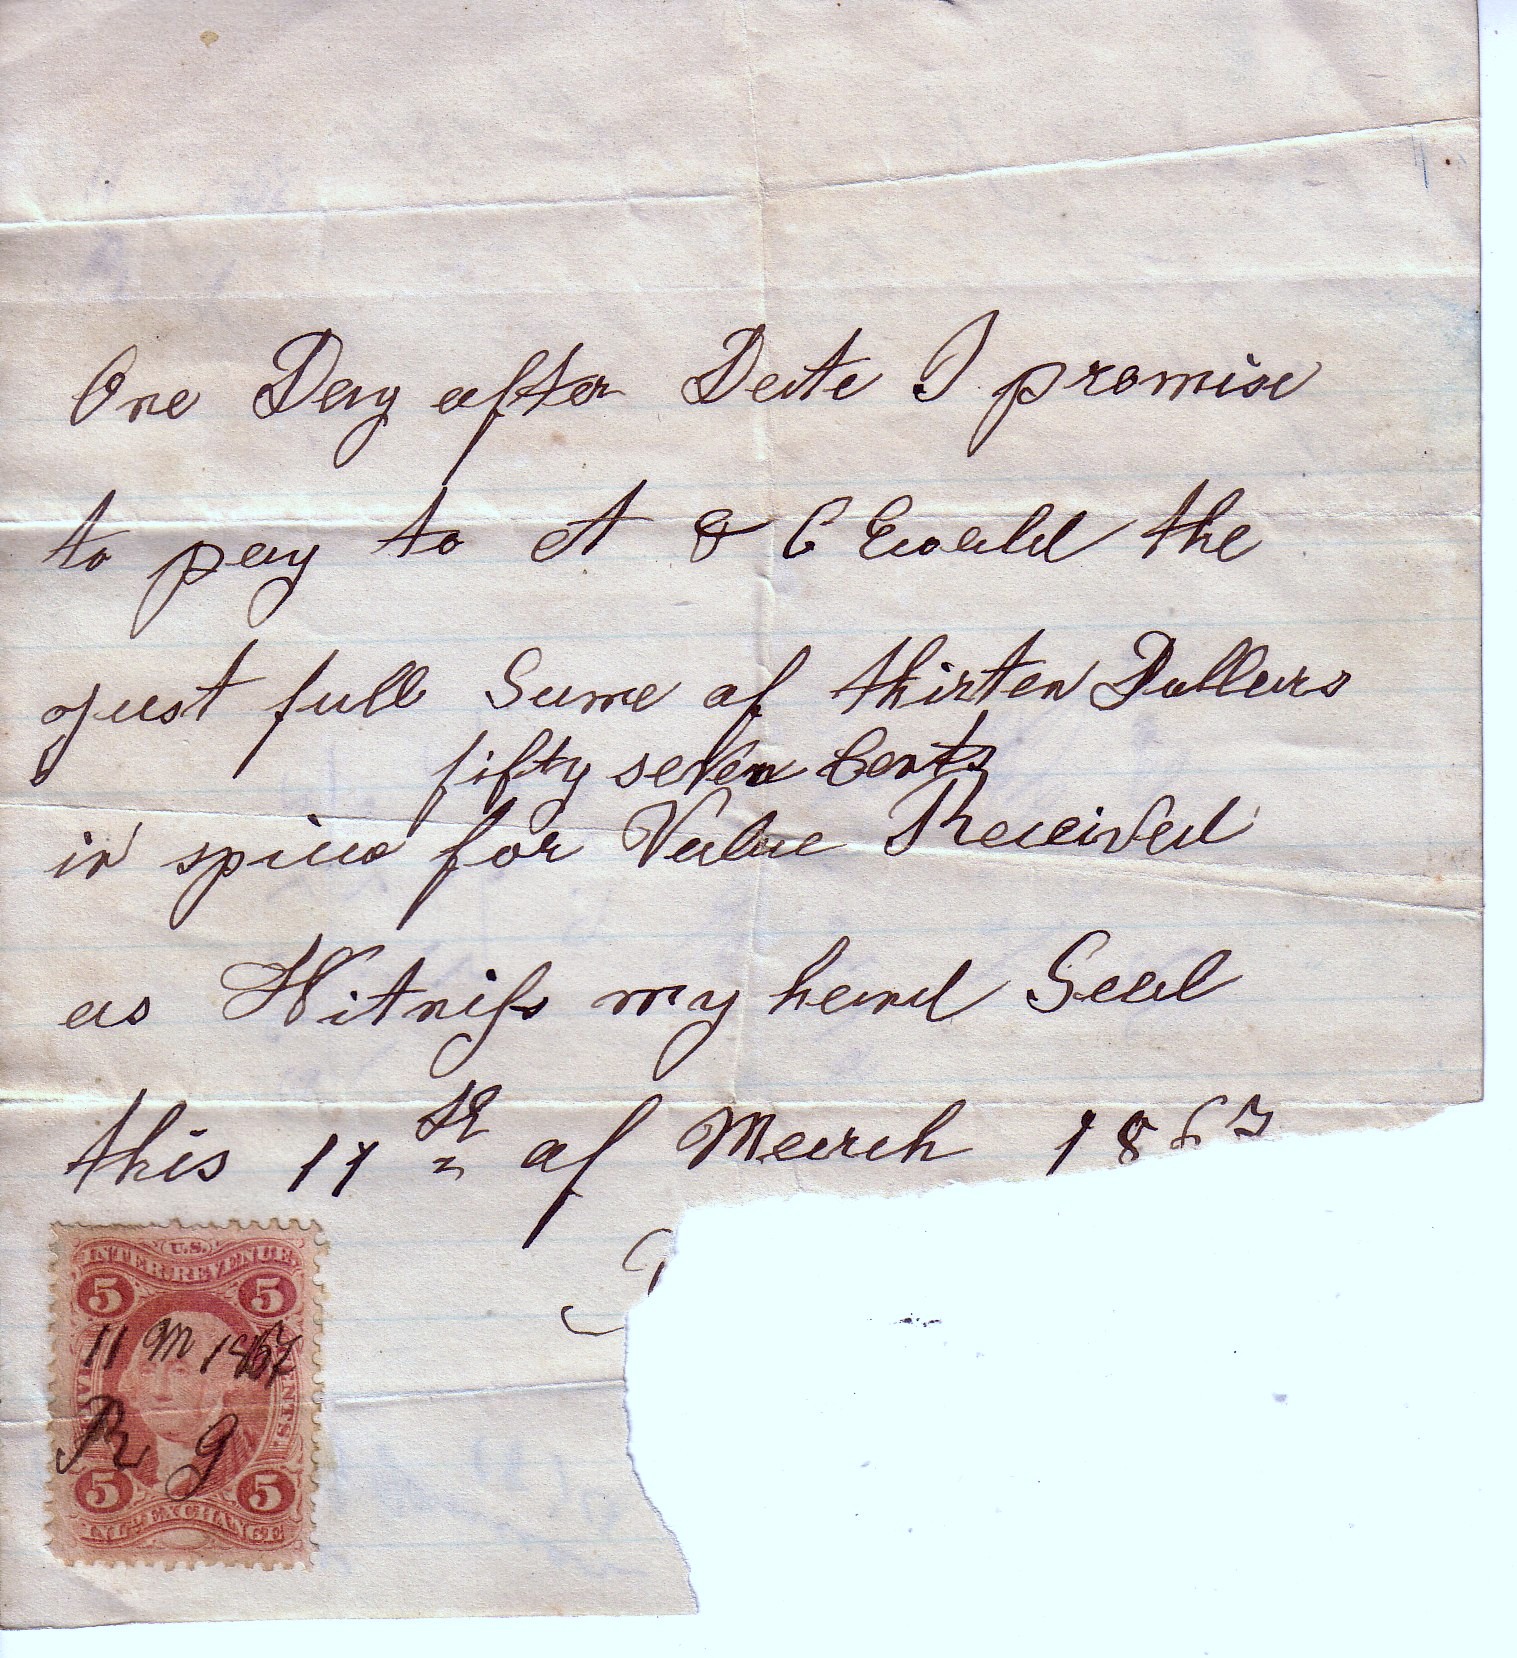 One Day after Date I promise
to pay to A & C Ewald the
just full Sume of thirten Dollars
fifty seven Cents
in spicie for Value Received
as Witniss my hand Seal
this 11th of March 1867
U.S.
INTER. REVENUE
5 5
11 M 1867
R G
5 5